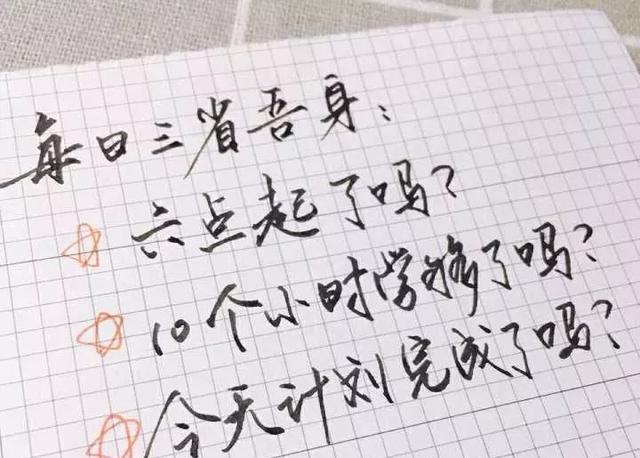 每日三省吾身：
六点起了吗？
10个小时学够了吗？
今天计划完成了吗？